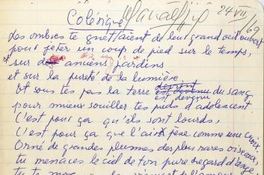 Colérique
24 VII 69
Les ombres te guettaient de leur grand œil ouvert
pour jeter un coup de pied sur le temps,
sur des anciens jardins
et sur la pureté de la lumière.
Et sous tes pas la terre devient du sang
est devenue
pour mieux souiller tes pieds d'adolescent
C'est pour ça qu'ils sont lourds,
C'est pour ça que l'air te pèse comme une Croix
Orné de grandes plumes des plus rares oiseaux,
tu menaces le ciel de ton pur regard d'ange